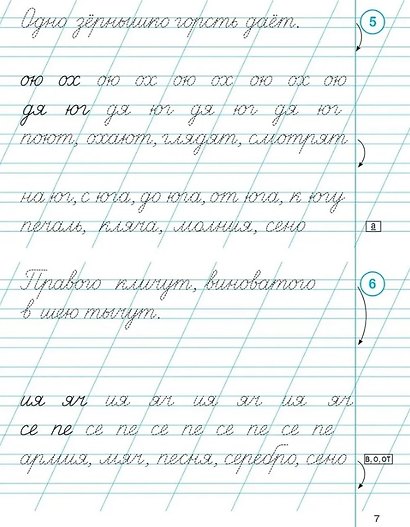 Одно зёрнышко горсть даёт. 5
ою ох ою ох ою ох ою ох ою
дя юг дя юг дя юг дя юг дя юг
поют, охают, глядят, смотрят
на юг, с юга, до юга, от юга, к югу
печаль, кляча, молния, сено а
Правого кличут, виноватого 6
в шею тычут.
ия яч ия яч ия яч ия яч
се пе се пе се пе се пе се пе
армия, мяч, песня, серебро, сено в, о, от
7